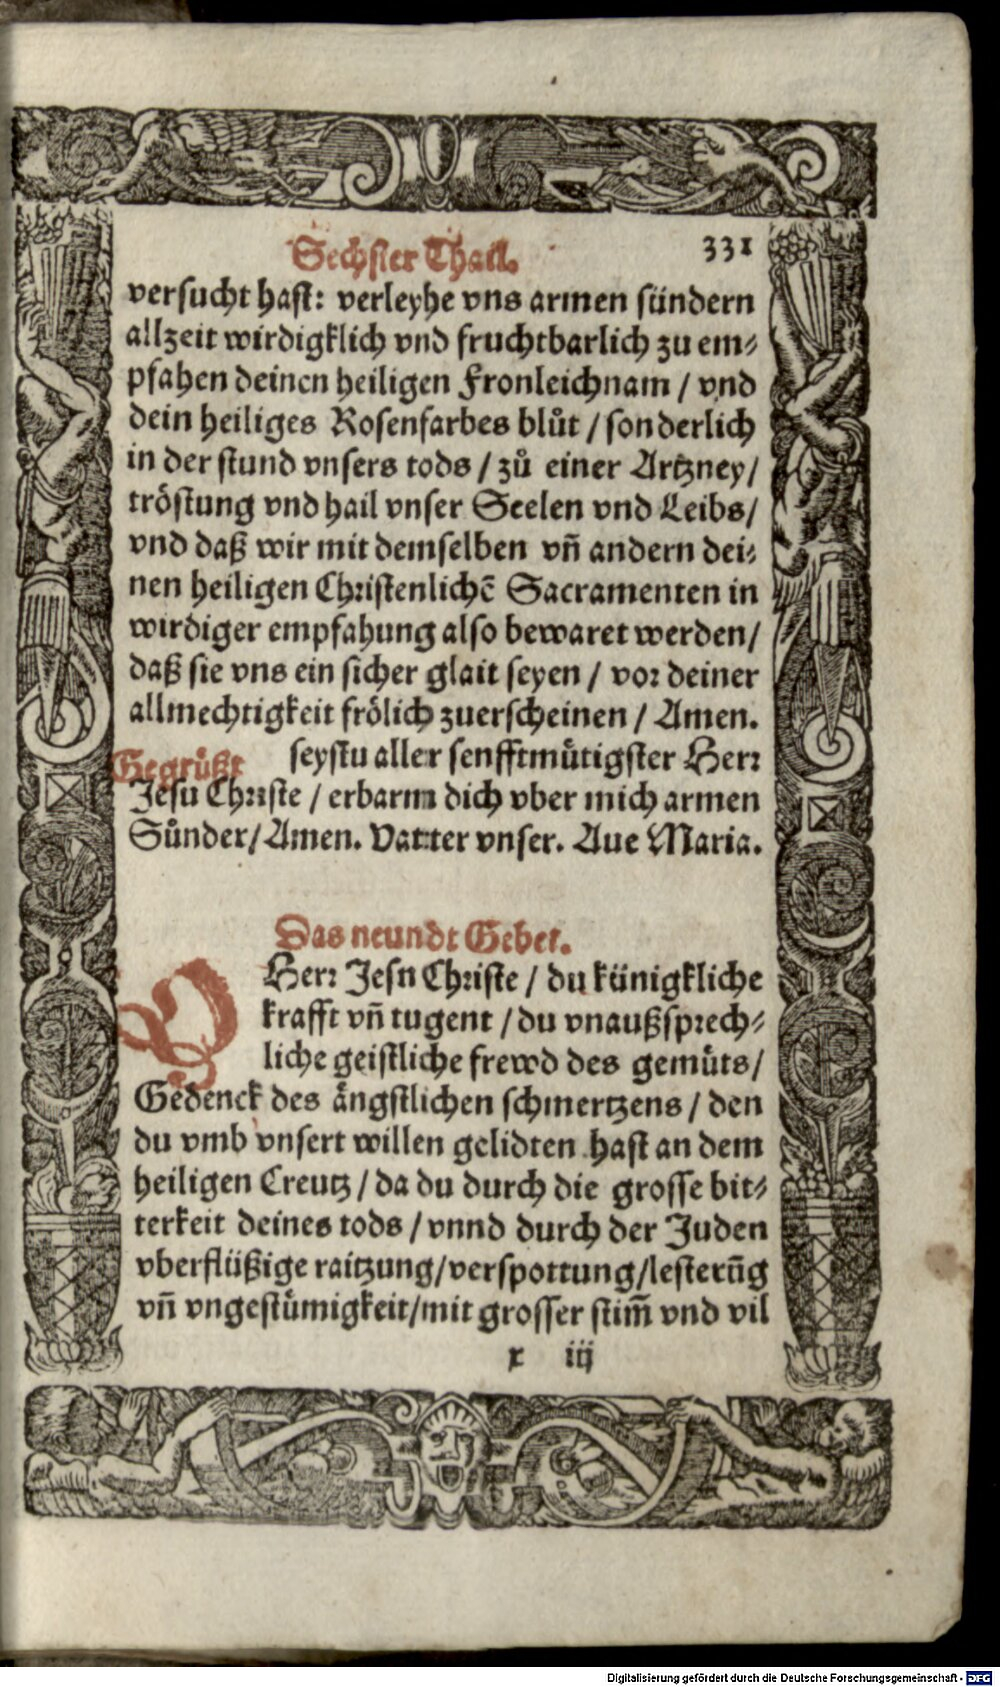 Sechster Thail. 331
versucht hast: verleyhe vns armen sündern
allzeit wirdigklich vnd fruchtbarlich zu em⸗
pfahen deinen heiligen Fronleichnam / vnd
dein heiliges Rosenfarbes blůt / sonderlich
in der stund vnsers tods / zů einer Artzney /
tröstung vnd hail vnser Seelen vnd Leibs /
vnd daß wir mit demselben vñ andern dei⸗
nen heiligen Christenlichẽ Sacramenten in
wirdiger empfahung also bewaret werden /
daß sie vns ein sicher glait seyen / vor deiner
allmechtigkeit frölich zuerscheinen / Amen.
Gegrüßt seystu aller senfftmütigster Herr
Jesu Christe / erbarm dich vber mich armen
Sünder / Amen. Vatter vnser. Aue Maria.
Das neundt Gebet.
O Herr Jesu Christe / du künigkliche
krafft vñ tugent / du vnaußsprech⸗
liche geistliche frewd des gemüts /
Gedenck des ängstlichen schmertzens / den
du vmb vnsert willen gelidten hast an dem
heiligen Creutz / da du durch die grosse bit⸗
terkeit deines tods / vnnd durch der Juden
vberflüßige raitzung / verspottung / lesterũg
vñ vngestümigkeit / mit grosser stim̃ vnd vil
x iij
Digitalisierung gefördert durch die Deutsche Forschungsgemeinschaft - DFG